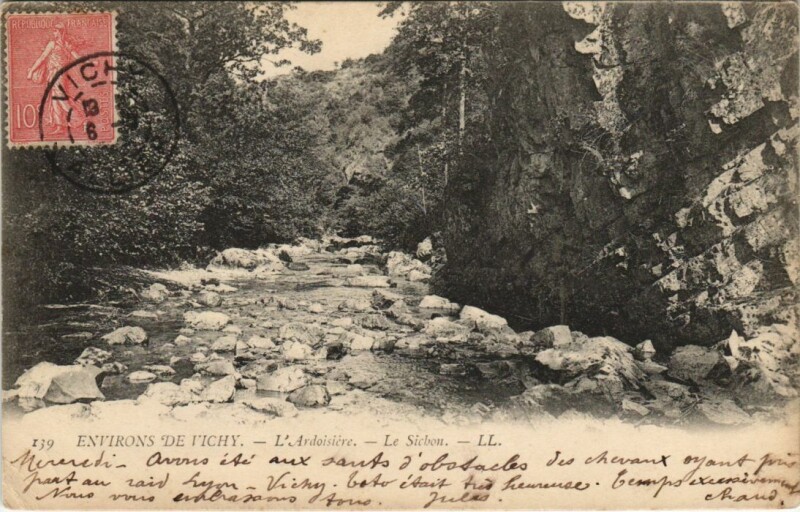 REPUBLIQUE FRANÇAISE
10
VICHY
139 ENVIRONS DE VICHY. — L'Ardoisière. — Le Sichon. — LL.
Mercredi — Avons été aux sauts d'obstacles des chevaux ayant pris
part au raid Lyon — Vichy. Toto était très heureuse. Temps excessivement
Nous vous embrassons tous. Jules. chaud.